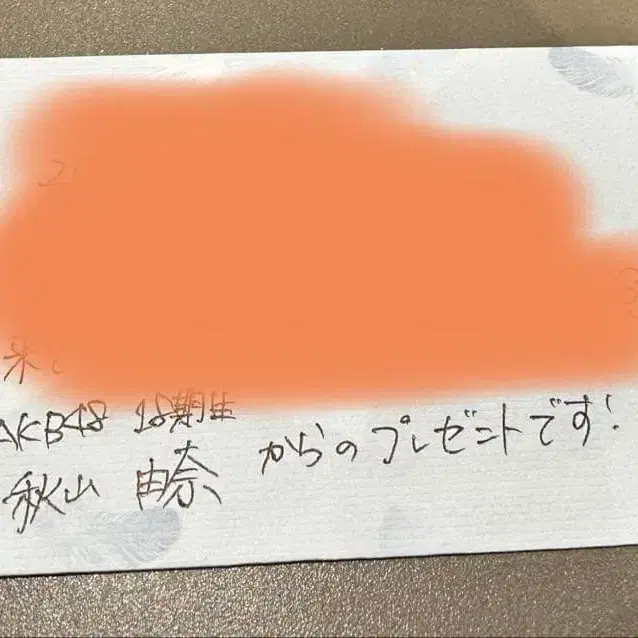 AKB48 18期生
秋山 由奈 からのプレゼントです!